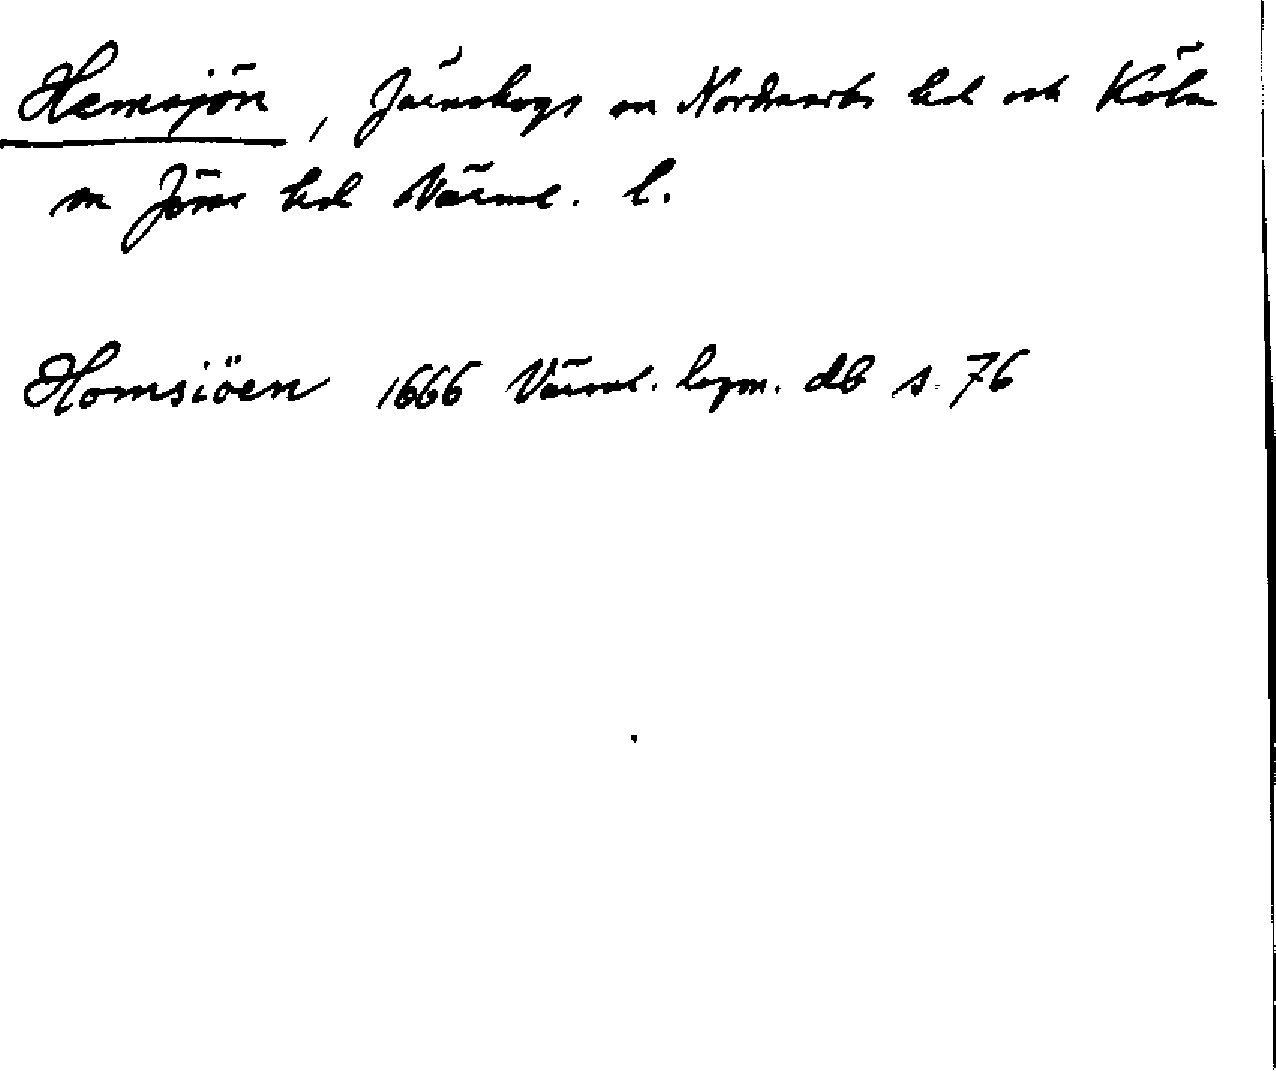 Hemsjön, Järnskogs sn Nordmarks hd och Köla
sn Jösse hd Värml. l.
Homsiöen 1666 Värml. bergm. db s. 76